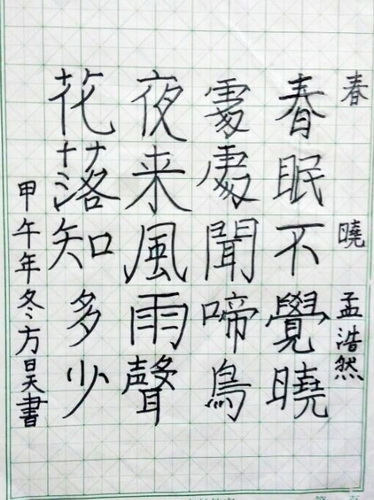 春 曉 孟浩然
春眠不覺曉
處處聞啼鳥
夜来風雨聲
花落知多少
甲午年冬方昊書